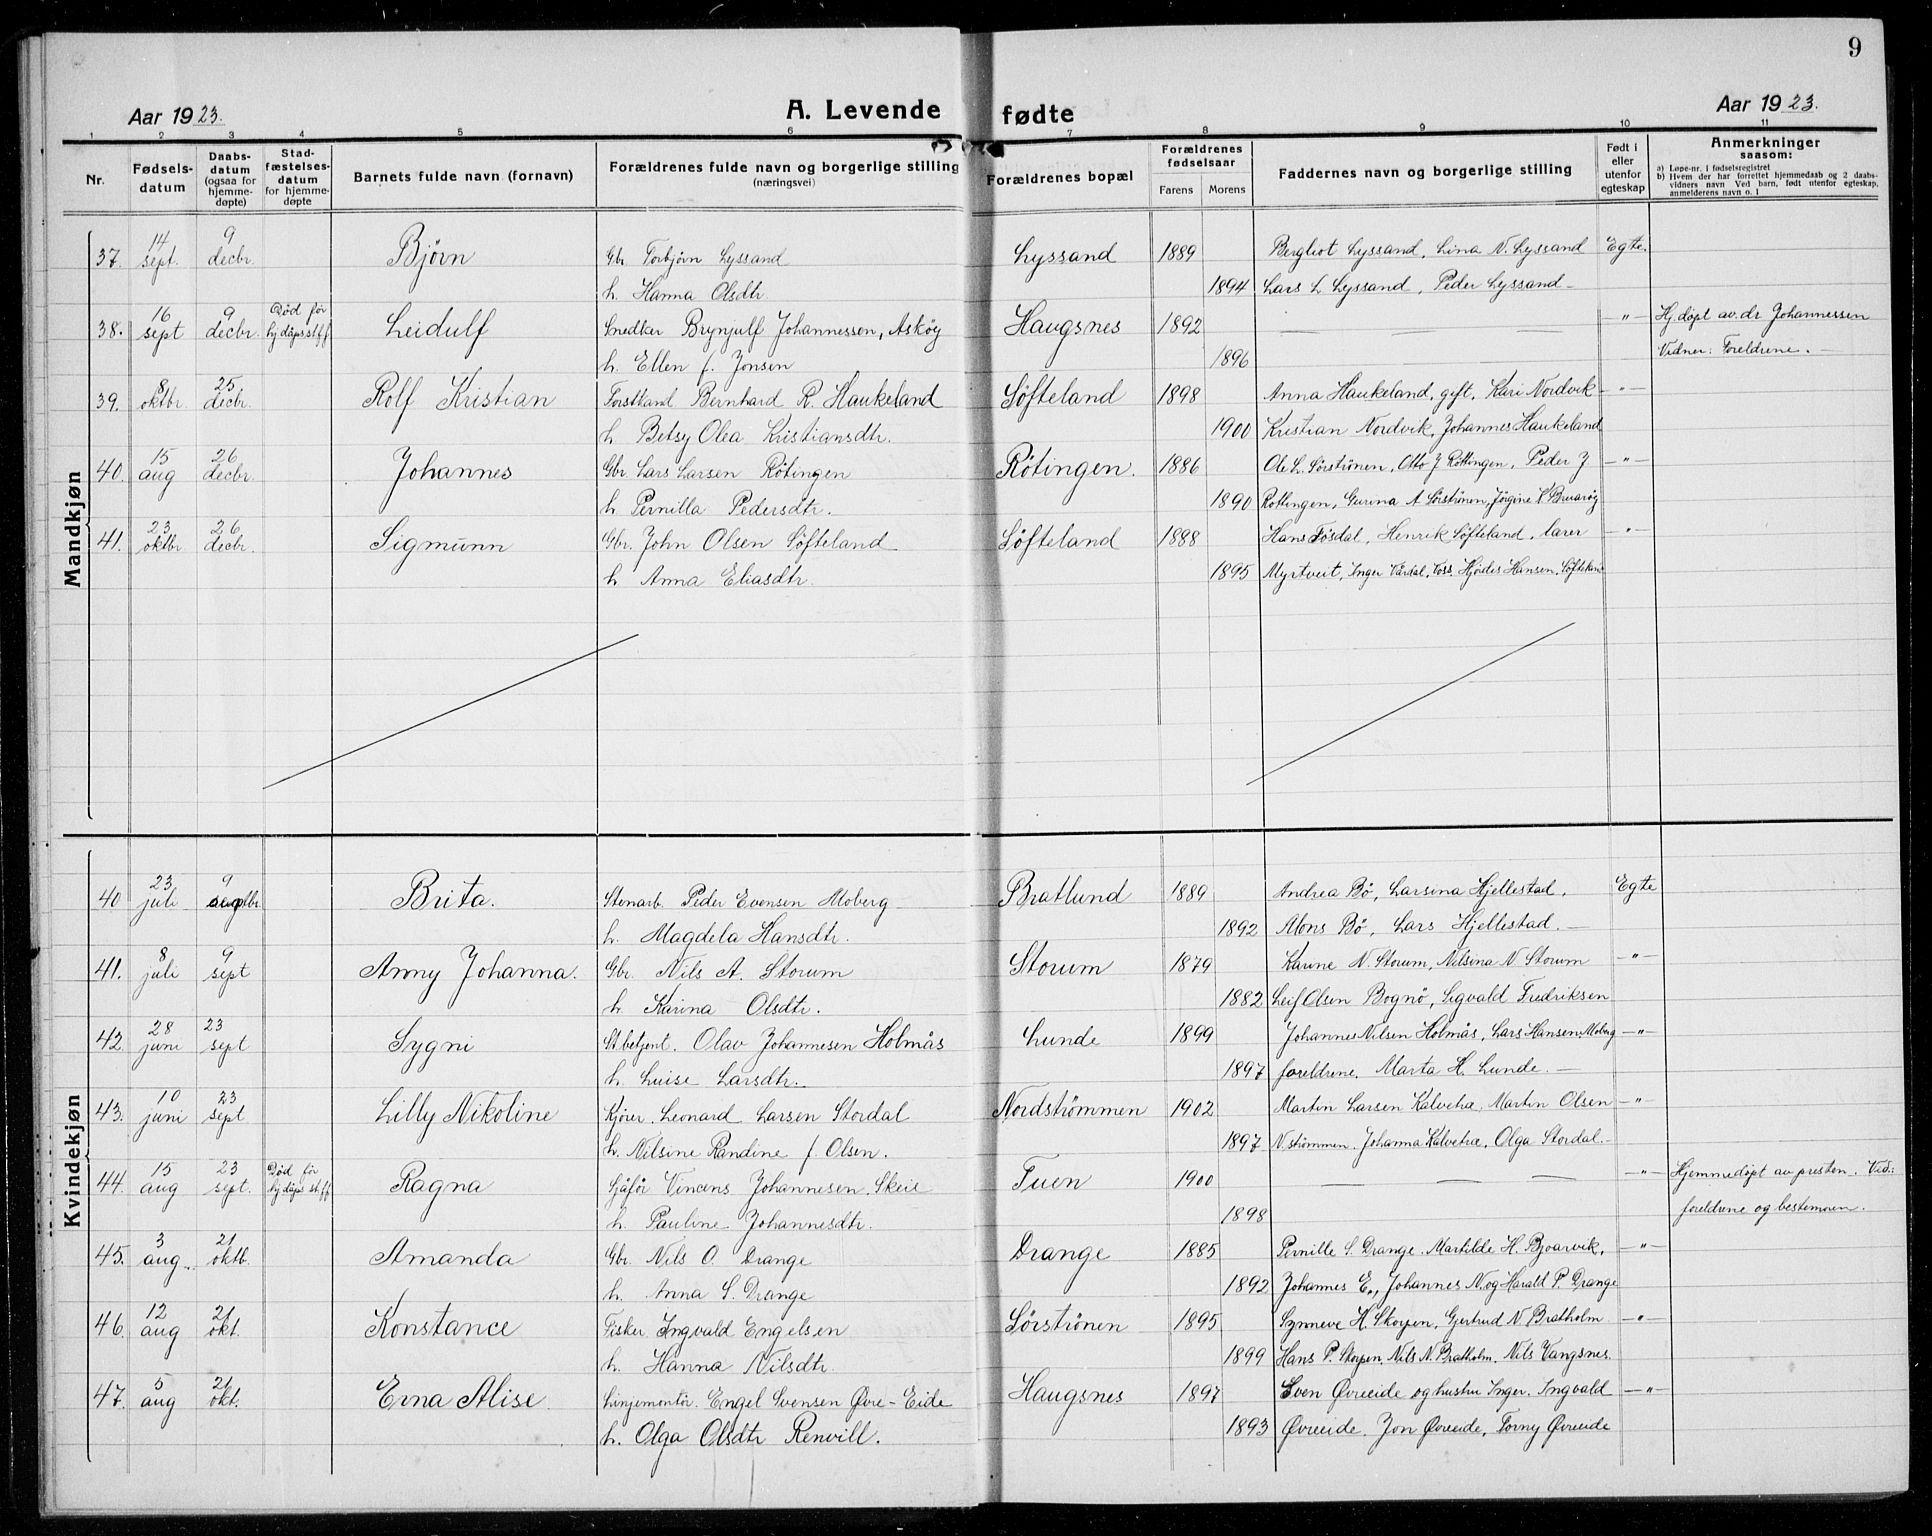 9
Aar 1923. A. Levende fødte Aar 1923.
1 2 3 4 5 6 7 8 9 10 11
Nr. Fødsels-datum Daabs-datum (ogsaa for hjemme-døpte) Stad-fæstelses-datum for hjemme-døpte Barnets fulde navn (fornavn) Forældrenes fulde navn og borgerlige stilling (næringsvei) Forældrenes bopæl Forældrenes fødselsaar Farens Morens Faddernes navn og borgerlige stilling Født i eller utenfor egteskap Anmerkninger saasom: a) Løpe-nr. i fødselsregistret b) Hvem der har forrettet hjemmedaab og 2 daabs-vidners navn Ved barn, født utenfor egteskap, anmelderens navn o. l
Mandkjøn
37. 14 sept. 9 decbr. Bjørn Gbr Torbjørn Lyssand Lyssand 1889 Bergliot Lyssand, Lina N. Lyssand Egte.
h. Hanna Olsdtr. 1894 Lars L Lyssand, Peder Lyssand –
38. 16 sept 9 decbr. Død før hj.dåps.st.f.f. Leidulf Snedker Brynjulf Johannessen, Askøy Haugsnes 1892 — — –"– Hj.døpt av dr Johannessen
h. Ellen f. Jonsen 1896 Vidner: Foreldrene. –
39. 8 oktbr. 25 decbr. Rolf Kristian Forstkand. Bernhard R. Haukeland Søfteland 1898 Anna Haukeland, gift, Kari Nordvik –"–
h. Betsy Olea Kristiansdtr. 1900 Kristian Nordvik, Johannes Haukeland
40. 15 aug 26 decbr. Johannes Gbr. Lars Larsen Røtingen Røtingen. 1886 Ole L. Sørstrønen, Otto J Røttingen, Peder J –"–
h. Pernilla Pedersdtr. 1890 Rottingen, Gurina A Sørstrønen, Jørgine K Bruarøy
41. 23 oktbr 26 decbr. Sigmunn Gbr. John Olsen Søfteland Søfteland 1888 Hans Føsdal, Henrik Søfteland, lærer –"–
h. Anna Eliasdtr. 1895 Myrtveit, Inger Vårdal, Voss. Hjørdis Hansen, Søfteland
Kvindekjøn
40 23 juli 9 septbr. Brita. Stenarb. Peder Evensen Moberg Bratlund 1889 Andrea Bø, Larsina Hjellestad, Egte
h. Magdela Hansdtr. 1892 Mons Bø, Lars Hjellestad. –
41. 8 juli 9 sept Anny Johanna. Gbr. Nils A. Storum Storum 1879 Karine N. Storum, Nilsina N Storum –"–
h. Karina Olsdtr. 1882 Leif Olsen Bognø, Sigvald Fredriksen
42 28 juni 23 sept Sygni St.betjent. Olav Johannesen Holmås Lunde 1899 Johannes Nilsen Holmås, Lars Hansen Moberg –"–
h. Luise Larsdtr. 1897 foreldrene. Marta H. Lunde. –
43. 10 juni 23 sept Lilly Nikoline Kjører Leonard Larsen Stordal Nordstrømmen 1902 Martin Larsen Kalvetræ, Martin Olsen –"–
h. Nilsine Randine f. Olsen. 1897 N.strømmen. Johanna Kalvetræ, Olga Stordal.
44. 15 aug 23 sept. Død før hj.dåps st.f.f Ragna Sjåfør Vincens Johannesen Skeie Tuen 1900 — — — –"– Hjemmedøpt av presten. Vid:
h. Pauline Johannesdtr. 1898 foreldrene og bestemoren.
45. 3 aug. 21 oktb. Amanda Gbr. Nils O. Drange Drange 1885 Pernille S. Drange. Martilde H. Bjoarvik, –"–
h. Anna S. Drange 1892 Johannes E., Johannes N. og Harald P. Drange
46. 12 aug 21 okt. Konstance Fisker Ingvald Engelsen Sørstrønen 1895 Synneve H. Skorpen, Gjertrud N. Bratholm –"–
h. Hanna Nilsdtr. 1899 Hans P. Skorpen, Nils N. Bratholm. Nils Vangsnes.
47. 5 aug 21 okt. Erna Alise. Linjemontør. Engel Svensen Øvre-Eide Haugsnes 1897 Sven Øvreeide og hustru Inger. Ingvald –"–
h. Olga Olsdtr Renvill. 1893 Øvreeide. Jon Øvreeide, Torny Øvreeide